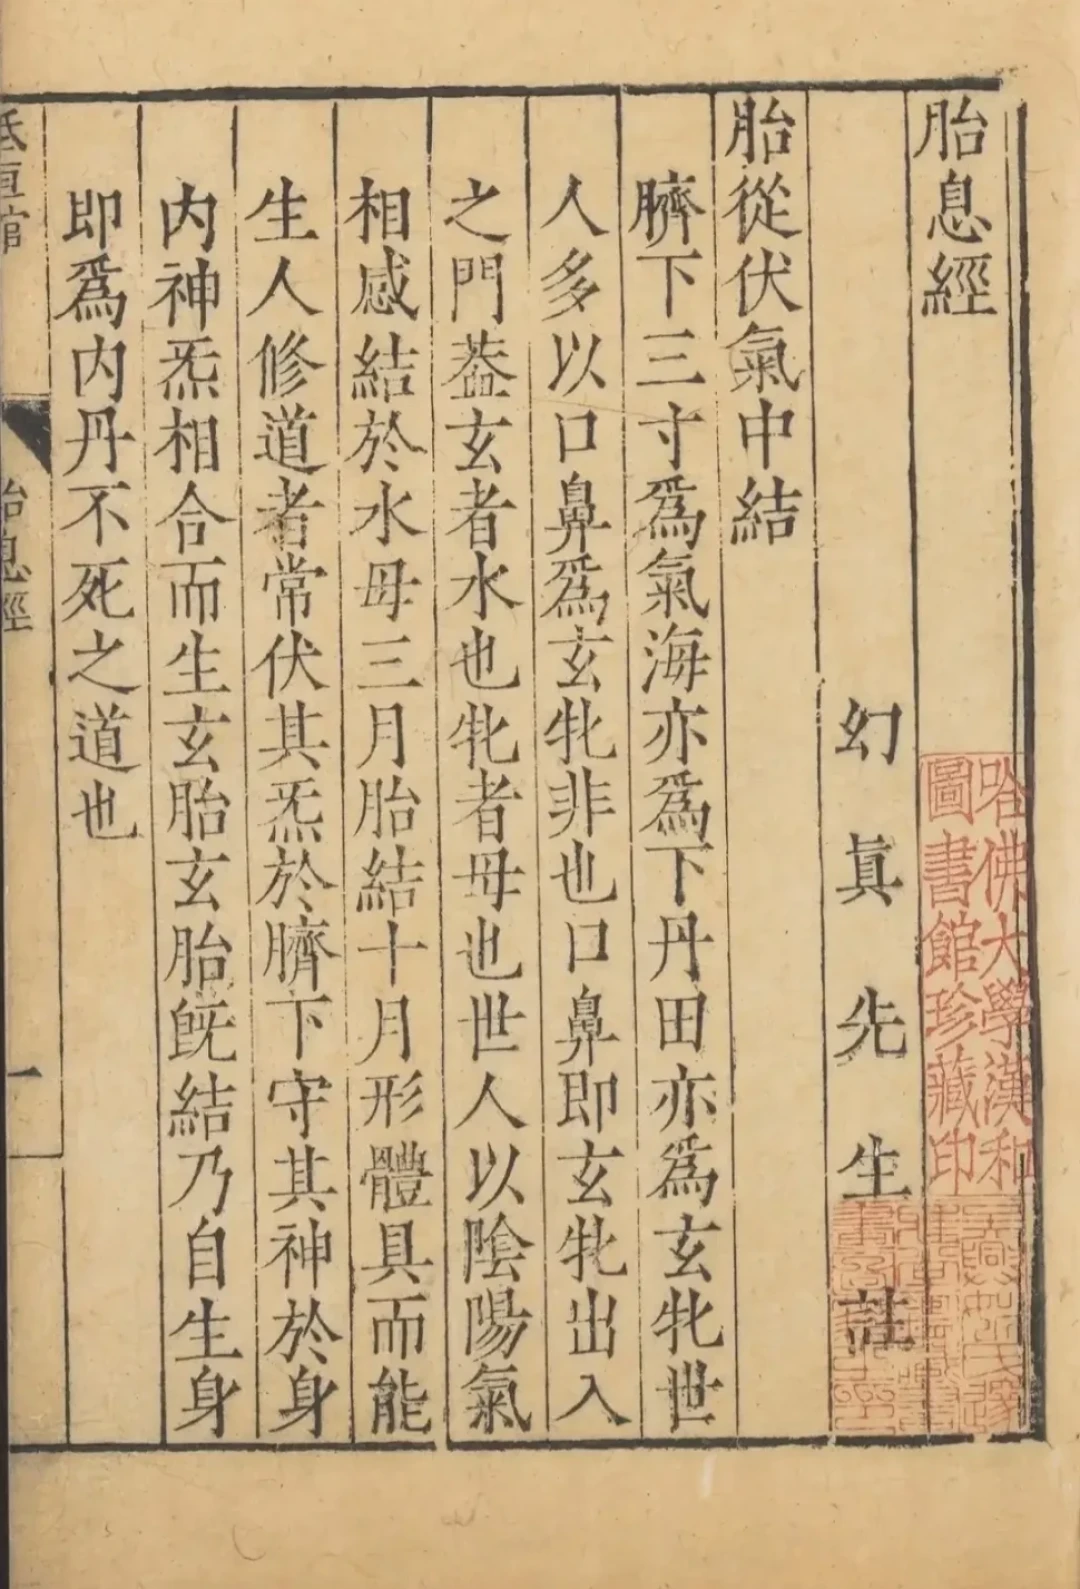 胎息經
幻眞先生註
胎從伏氣中結
臍下三寸爲氣海亦爲下丹田亦爲玄牝世
人多以口鼻爲玄牝非也口鼻即玄牝出入
之門葢玄者水也牝者母也世人以陰陽氣
相感結於水母三月胎結十月形體具而能
生人修道者常伏其炁於臍下守其神於身
内神炁相合而生玄胎玄胎旣結乃自生身
即爲内丹不死之道也
胎息經
一
哈佛大學漢和
圖書館珍藏印